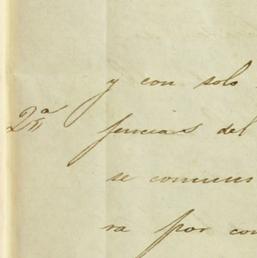 y con solo
2ª
juncias del
se comun
ra por con